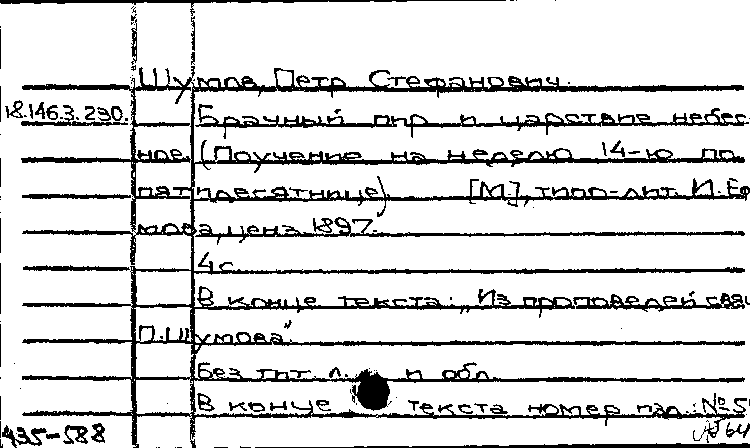 Шумов, Петр Стефанович.
18.146.3.230. Брачный пир и царствие небес-
ное. (Поучение на неделю 14-ю по
пятидесятнице) [М], типо-лит. И. Еф
мова, ценз. 1897.
4 с.
В конце текста: „Из проповедей свящ
П. Шумова".
Без тит. л. и обл.
В конце текста номер изд.: № 5
А435-588